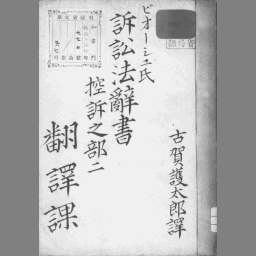 ビオーシェ氏
訴訟法辭書
控訴之部二
古賀護太郎譯
翻譯課